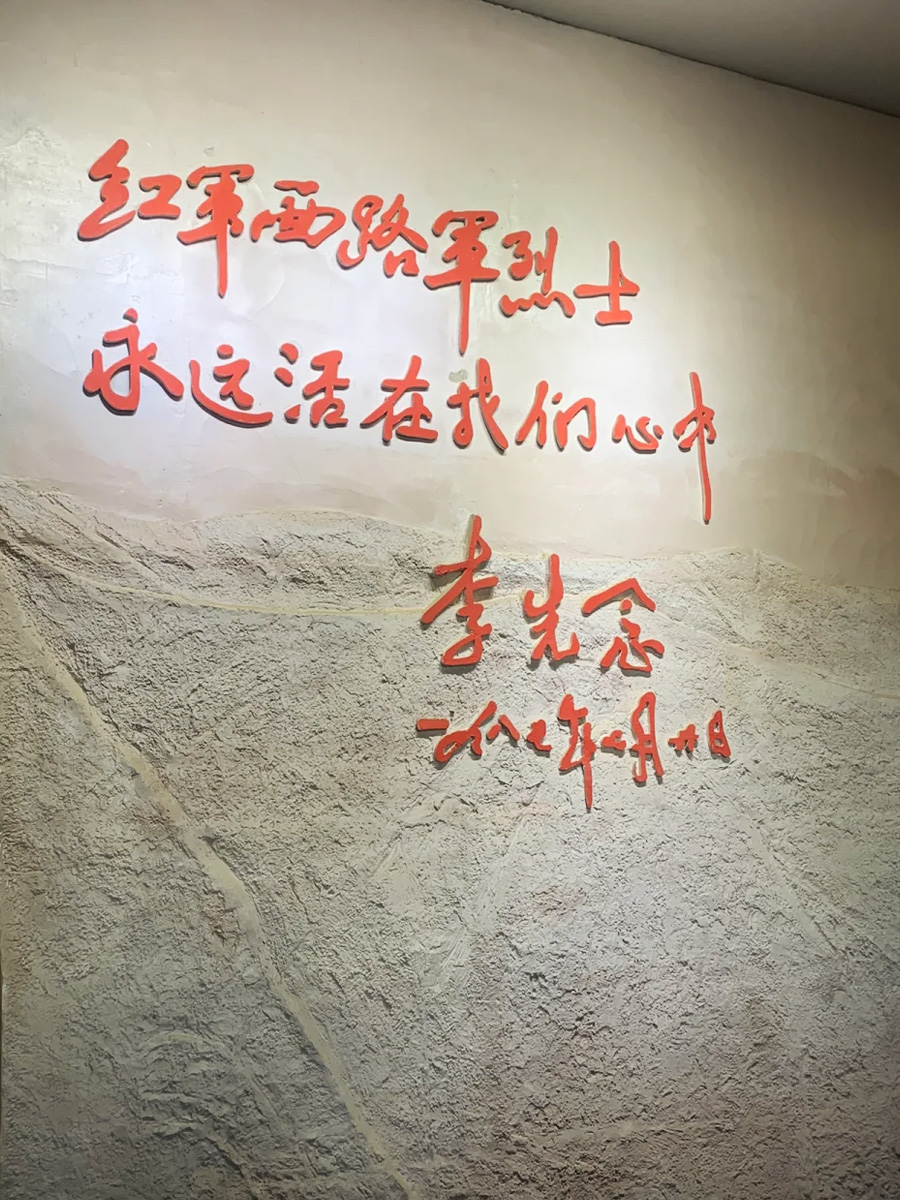 红军西路军烈士
永远活在我们心中
李先念
一九八七年七月廿日